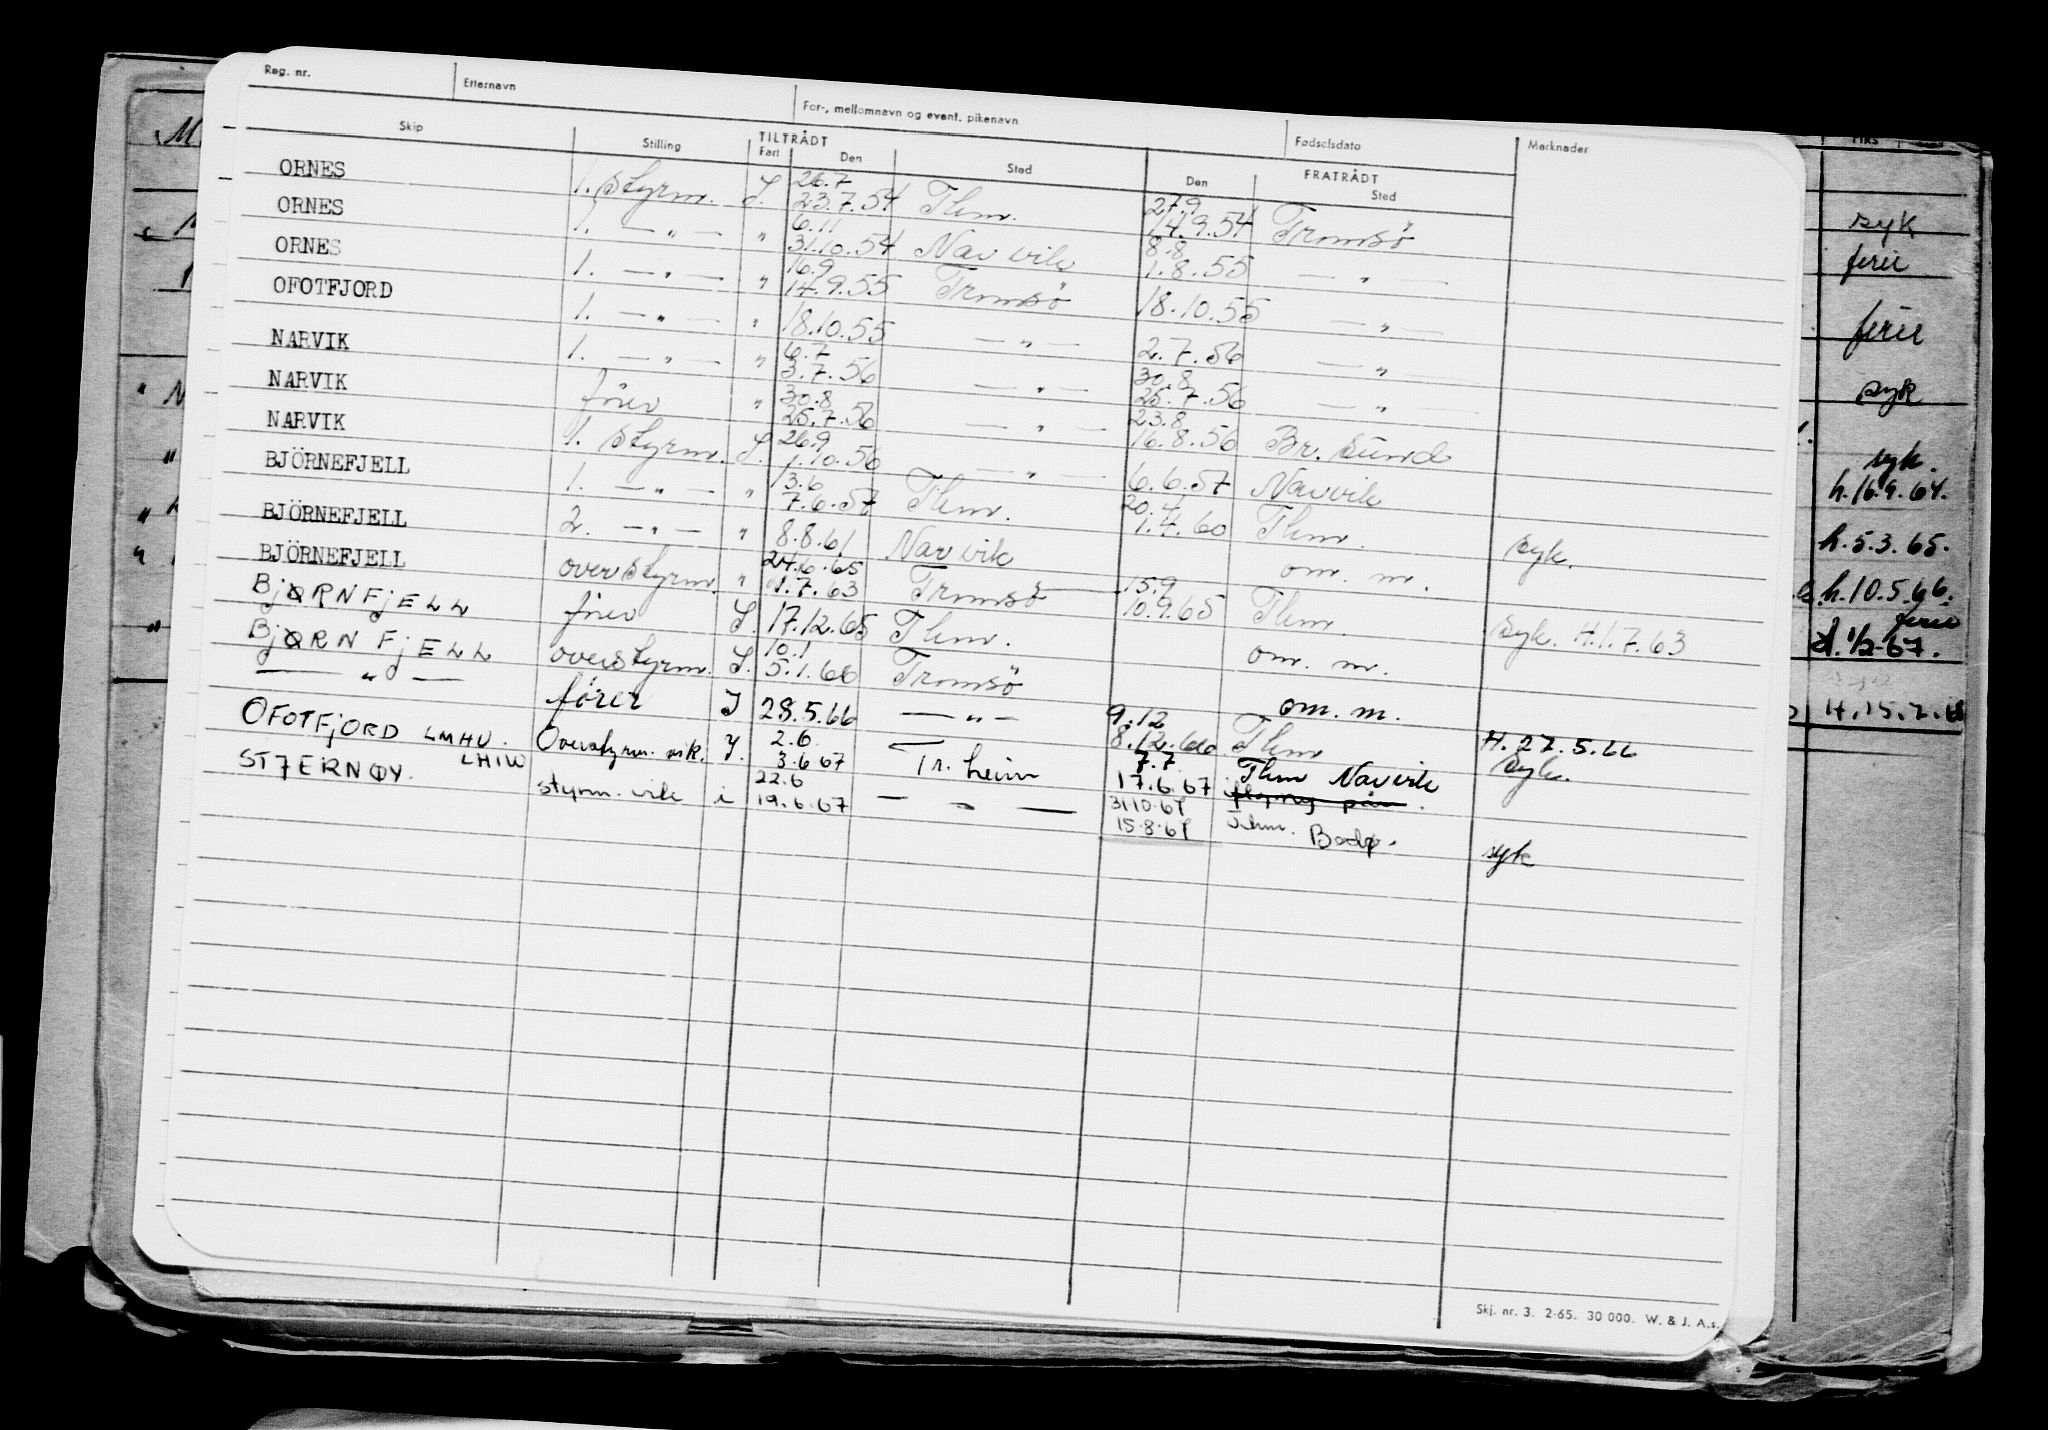 Reg. nr. Etternavn For-, mellomnavn og event. pikenavn Fødselsdato Merknader
Skip Stilling TILTRÅDT FRATRÅDT
Fart Den Sted Den Sted
26.7 27.9
ORNES 1. Styrm. I. 23.7.54 Thm. 14.9.54 Tromsö
6.11 8.8
ORNES 1. — " — " 31.10.54 Narvik 1.8.55 — " —
16.9
ORNES 1. — " — " 14.9.55 Tromsö 18.10.55 — " —
OFOTFJORD 1. — " — " 18.10.55 — " — 2.7.56 — " —
6.7 30.8
NARVIK 1. — " — " 3.7.56 — " — 25.7.56 — " —
30.8 23.8
NARVIK förer " 25.7.56 — " — 16.8.56 Br. sund
26.9
NARVIK 1. Styrm. I. 1.10.56 — " — 6.6.57 Narvik
13.6 20.4
BJÖRNEFJELL 1. — " — " 7.6.57 Thm. 1.4.60 Thm. syk.
BJÖRNEFJELL 2. — " — " 8.8.61 Narvik om. m.
24.6.65 15.9
BJÖRNEFJELL overstyrm. " 1.7.63 Tromsö 10.9.65 Thm. Syk. H.1.7.63
BjØRNFjELL förer I. 17.12.65 Thm. om. m.
10.1
BjØRNFjELL overstyrm. I. 5.1.66 Tromsö
— " — fører I 28.5.66 — " — om. m. H. 27.5.66
2.6 9.12
OFOTFjORD LMHU. Overstyrm. vik. I. 3.6 67 Tr. heim 8.12.66 Thm syk.
LHIW
22.6 7.7
STJERNØY. styrm. vik i 19.6.67 — " — 17.6.67 Thm Narvik
31.10.67
15.8.67 Thm. Bodø. syk
syk
ferie
ferie
syk
syk.
h.16.9.64.
h.5.3.65.
h.10.5.66.
ferie
H. 1/2-67.
Skj. nr. 3. 2-65. 30 000. W. & J. A.s.